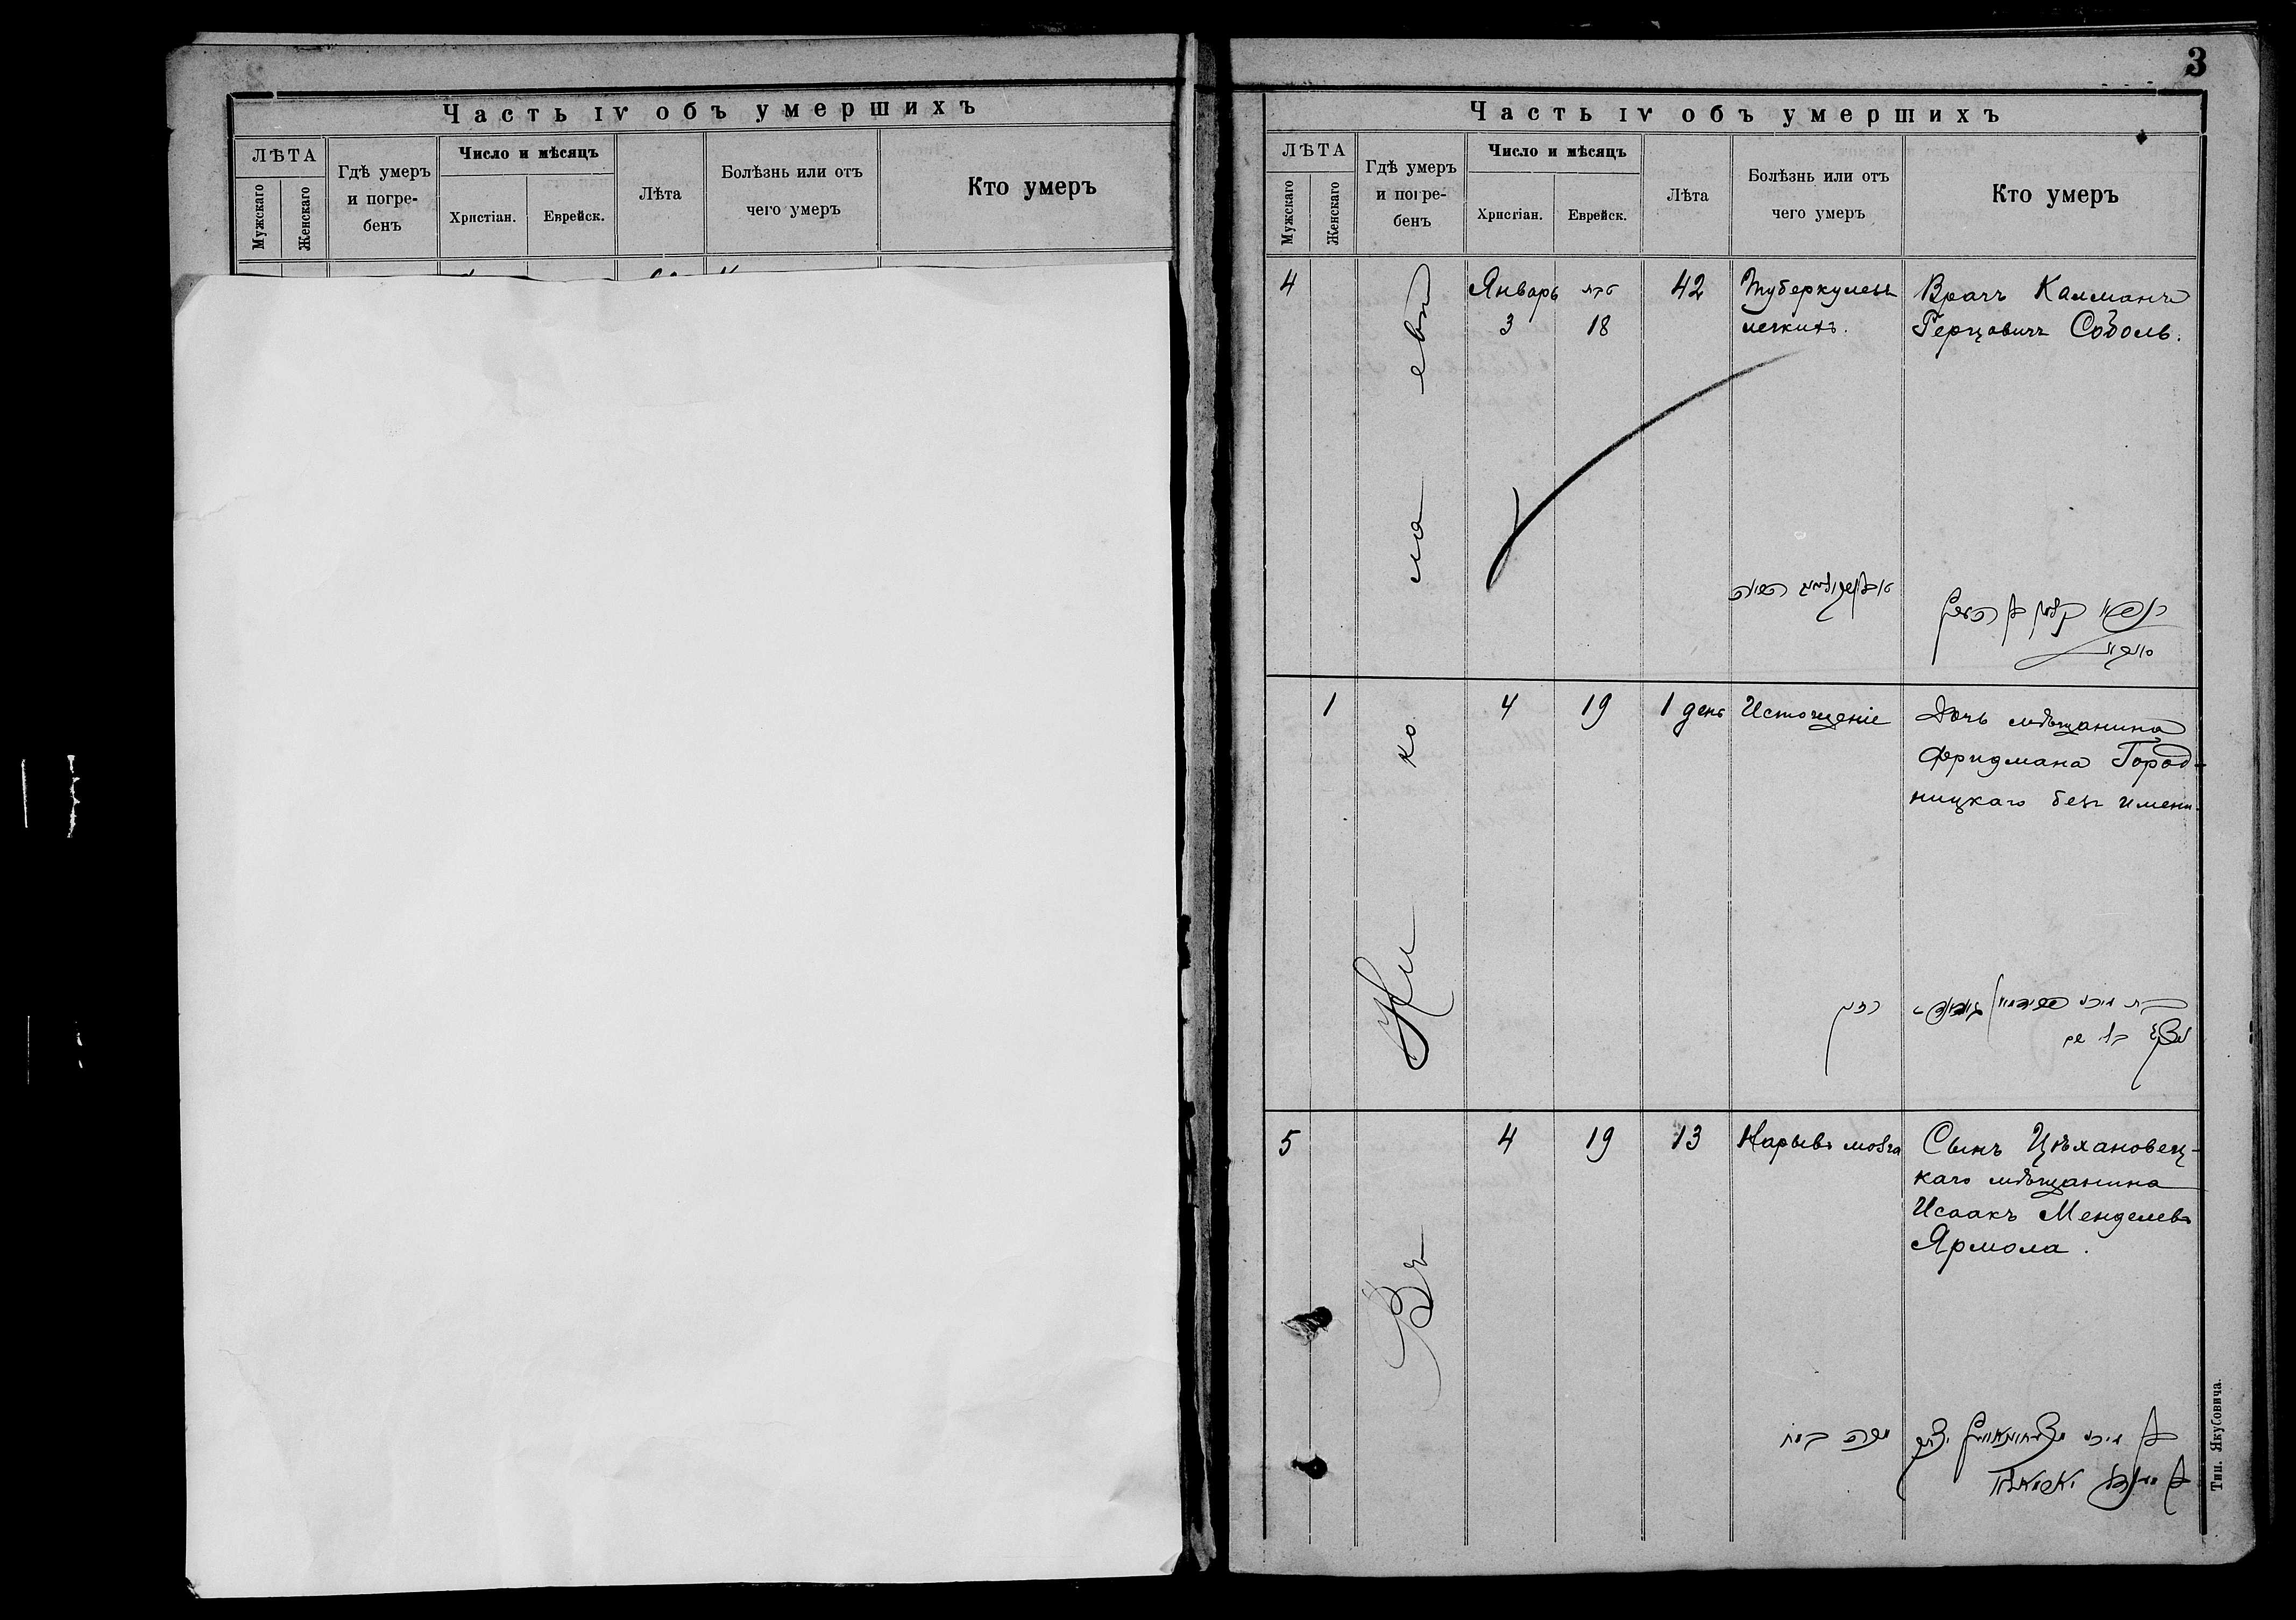 Часть IV объ умершихъ
ЛѢТА
Мужскаго
Женскаго
Гдѣ умеръ
и погре-
бенъ
Число и мѣсяцъ
Христіан.
Еврейск.
Лѣта
Болѣзнь или отъ
чего умеръ
Кто умеръ
3
Часть IV объ умершихъ
ЛѢТА
Мужскаго
Женскаго
Гдѣ умеръ
и погре-
бенъ
Число и мѣсяцъ
Христіан.
Еврейск.
Лѣта
Болѣзнь или отъ
чего умеръ
Кто умеръ
Въ Николаевѣ
4
Январь
3
טבת
18
42
Туберкулезъ
легкихъ.
Врачъ Калманъ
Герцовичъ Соболь.
1
4
19
1 день
Истощеніе
Дочь мѣщанина
Фридмана Город-
ницкаго безъ имени.
5
4
19
13
Нарывъ мозга
Сынъ Цѣхановец-
каго мѣщанина
Исаакъ Менделевъ
Ярмола.
Тип. Якубовича.